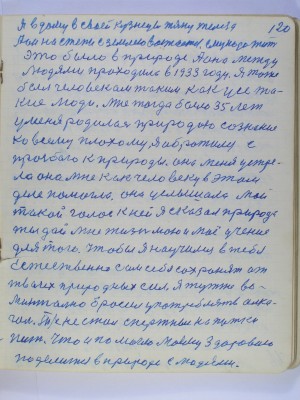 120
Я в дому в своей кузнецы
Это было в природе Она между
Людями проходила в 1933 году. Я тоже
был человекам таким как усе та-
кие люди. Мне тогда было 35 лет
у меня родилася природою сознание
ко всему плохому. Я обротился с
прозьбаю к природы. она меня устре-
ло она мне как человеку в этом
деле помогла. она услышала мой
такой голос к ней Я сказал природа
ты дай мне жизнь мою и моё учение
для того, чтобы я научился в тебя
Естественно сам себя сохранят от
твоих природных сил. Я тут же мо-
ментально бросил употреблять алка-
гол. Я не стал спертные напитки
пит. Что и помогло моему Здоровию
поделится в природе с людями.